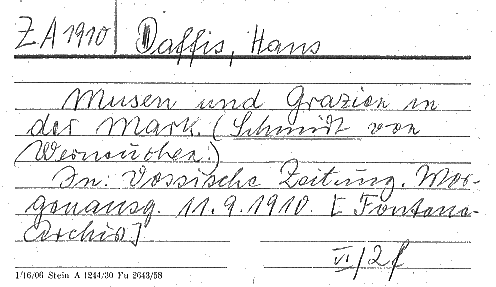 ZA 1910 Daffis, Hans
Musen und Grazien in
der Mark. (Schmidt von
Werneuchen.)
In: Vossische Zeitung. Mor-
genausg. 11.9.1910. [Fontane-
Archiv]
VI/2f
1/16/06 Stein A 1244/30 Fu 2643/58